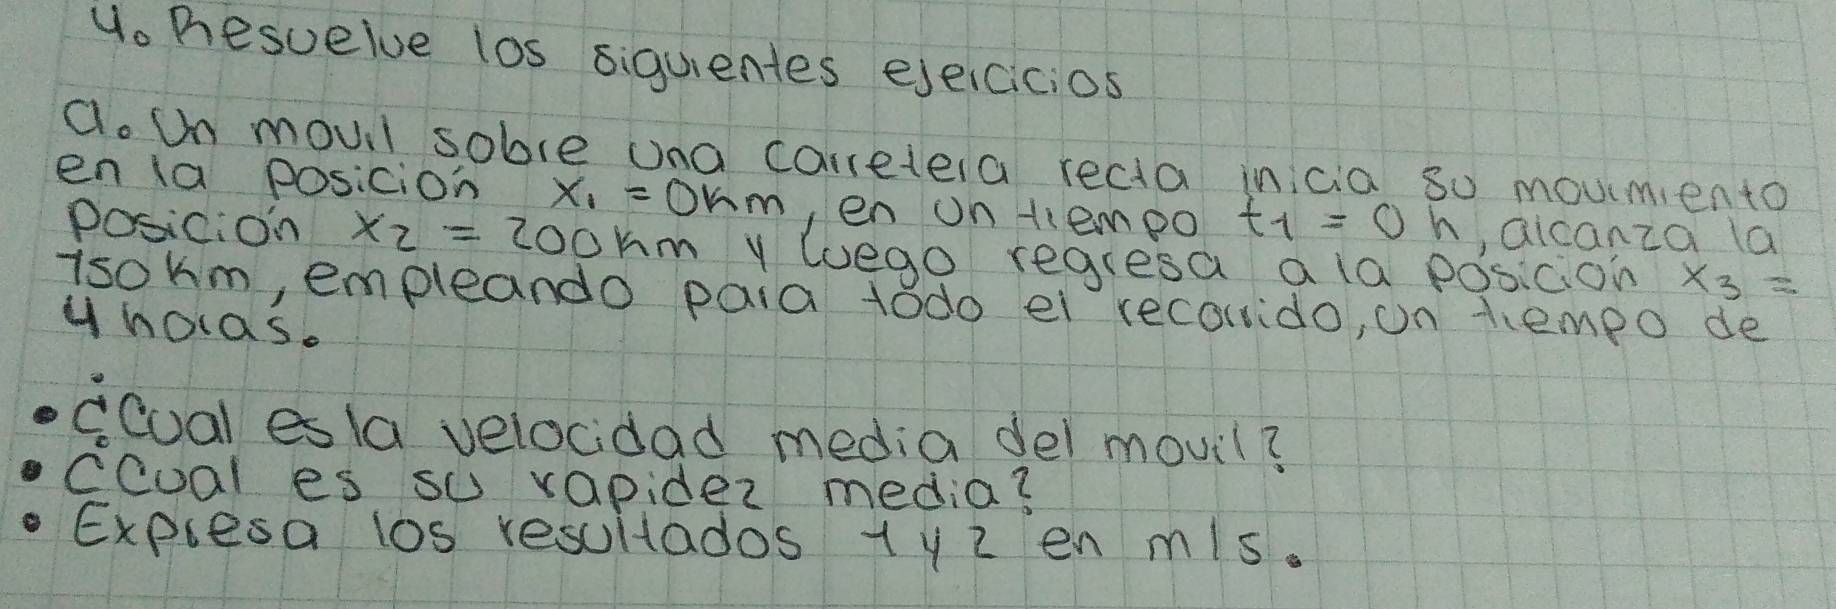 4. Resuelve los siguientes ejercicios
a. Un movil sobre una carretera recta inicia su movimiento
en la posición x₁ = 0km, en un tiempo t₁ = 0 h, alcanza la
posición x₂ = 200km y luego regresa a la posición x₃ =
150 km, empleando para todo el recorrido, un tiempo de
4 horas.
• ¿Cual es la velocidad media del movil?
• ¿Cual es su rapidez media?
• Expresa los resultados 1 y 2 en m/s.